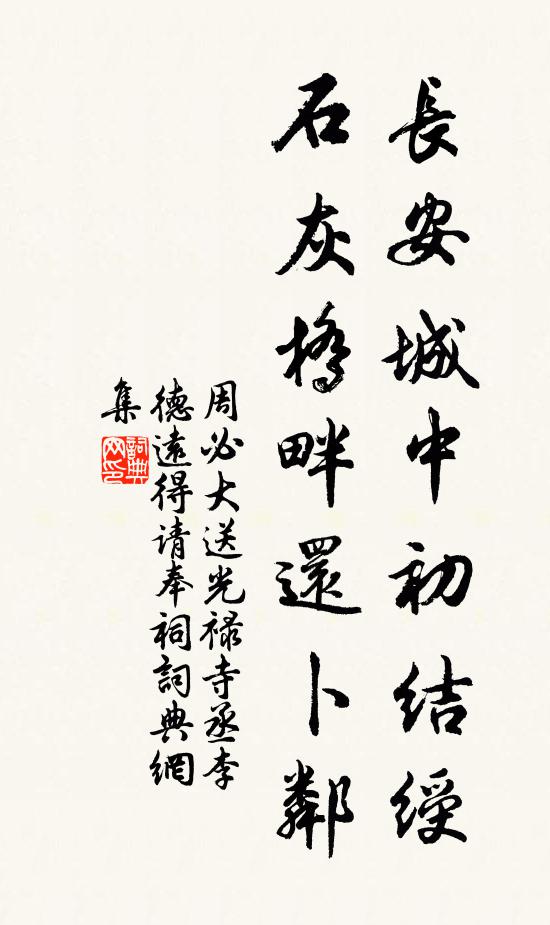 長安城中初結綬
石灰橋畔還卜鄰
周必大送光禄寺丞李
德遠得请奉祠詞典網
集
詞典
网印